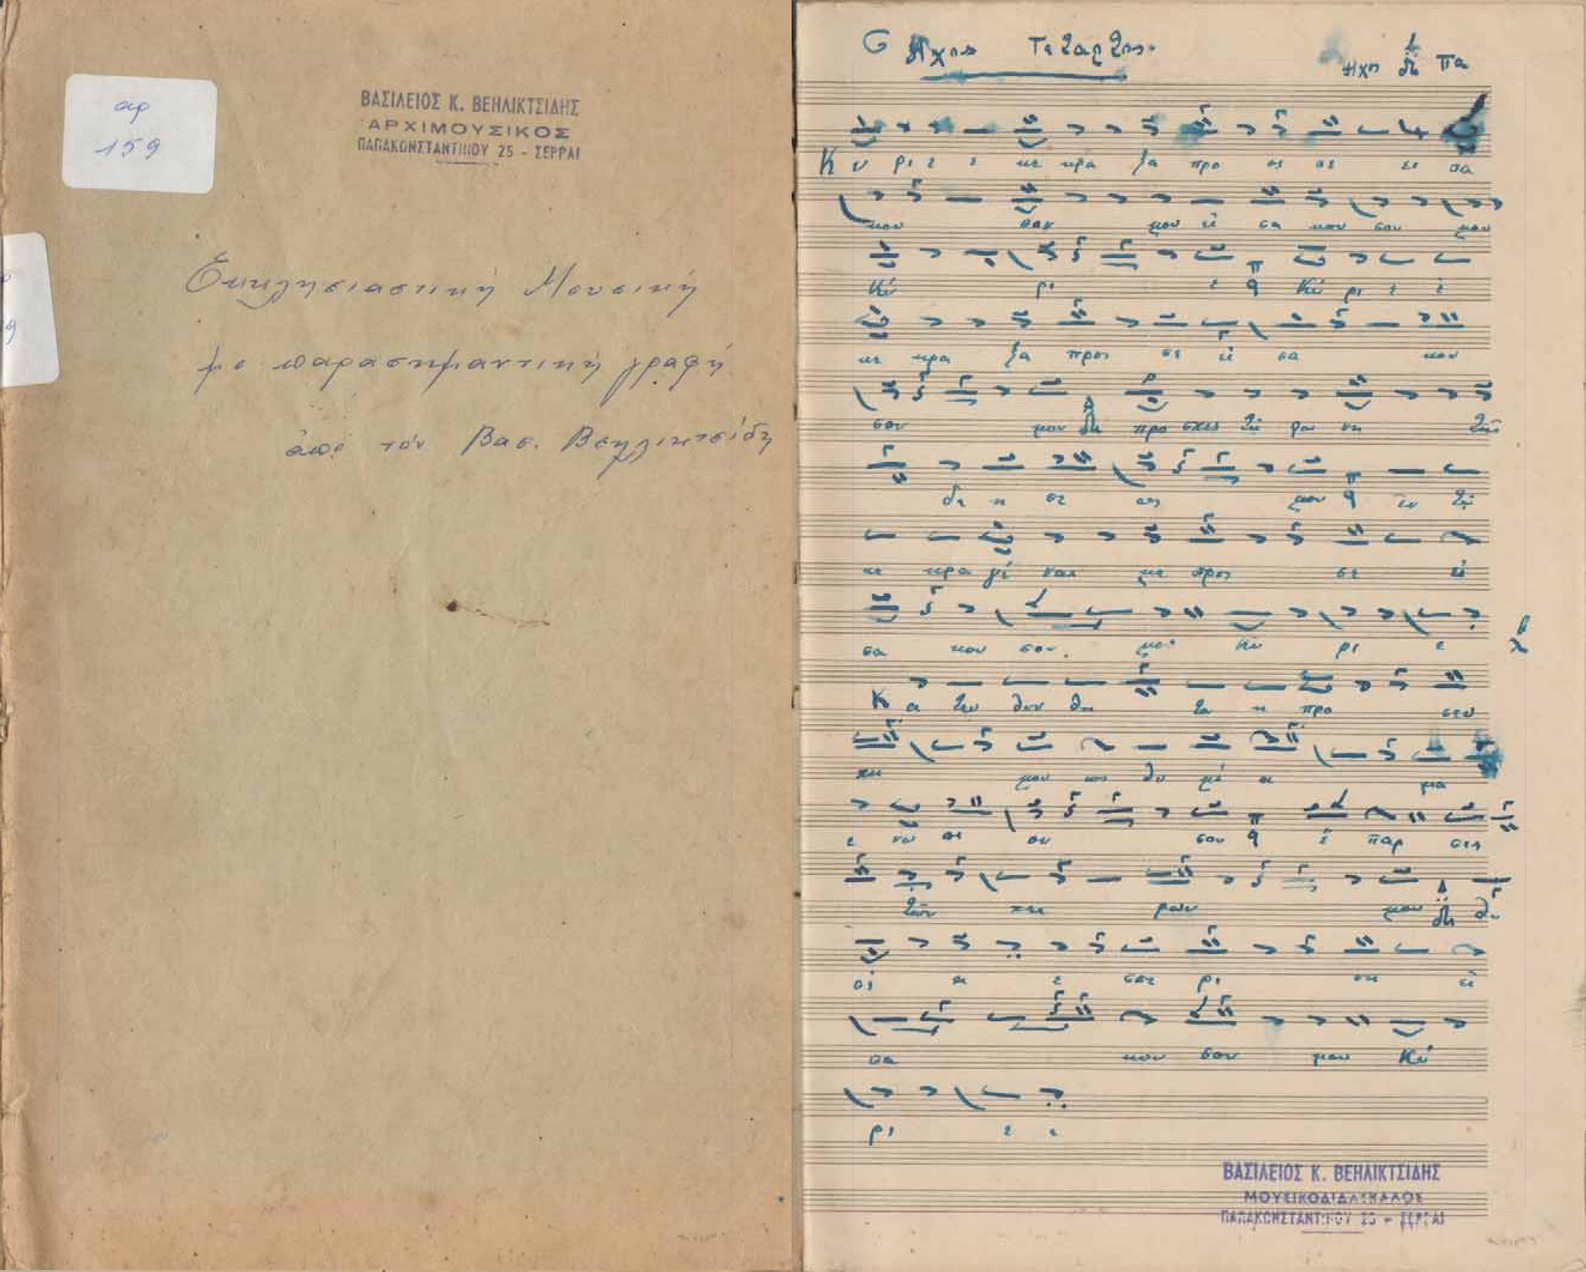 αρ
159
ΒΑΣΙΛΕΙΟΣ Κ. ΒΕΗΛΙΚΤΣΙΔΗΣ
ΑΡΧΙΜΟΥΣΙΚΟΣ
ΠΑΠΑΚΩΝΣΤΑΝΤΙΝΟΥ 25 - ΣΕΡΡΑΙ
Ἐκκλησιαστική Μουσική
με παρασημαντική γραφή
ἀπό τόν Βασ. Βεηλικτσίδη
Ηχος Τεταρτος.
Ηχος Πα
Κ υ ρι ε ε κε κρα ξα προ ος σε ει σα
κου σον μου εἰ σα κου σου μου
Κύ ρι ε Κύ ρι ε ε
κε κρα ξα προς σε εἰ σα κου
σον μου προ σχες τῇ φω νῇ τῆς
δε η σε ως μου εν τῷ
κε κρα γέ ναι με προς σε εἰ
σα κου σον. μου Κυ ρι ε
Κ α τευ θυν θη τω η προ σευ
χη μου ως θυ μί α μα
ε νω πι ον σου ἔ παρ σις
τῶν χει ρων μου θυ
σι α ε σπε ρι νη εἰ
σα κου σον μου Κύ
ρι ε ε
ΒΑΣΙΛΕΙΟΣ Κ. ΒΕΗΛΙΚΤΣΙΔΗΣ
ΜΟΥΣΙΚΟΔΙΔΑΣΚΑΛΟΣ
ΠΑΠΑΚΩΝΣΤΑΝΤΙΝΟΥ 25 - ΣΕΡΡΑΙ